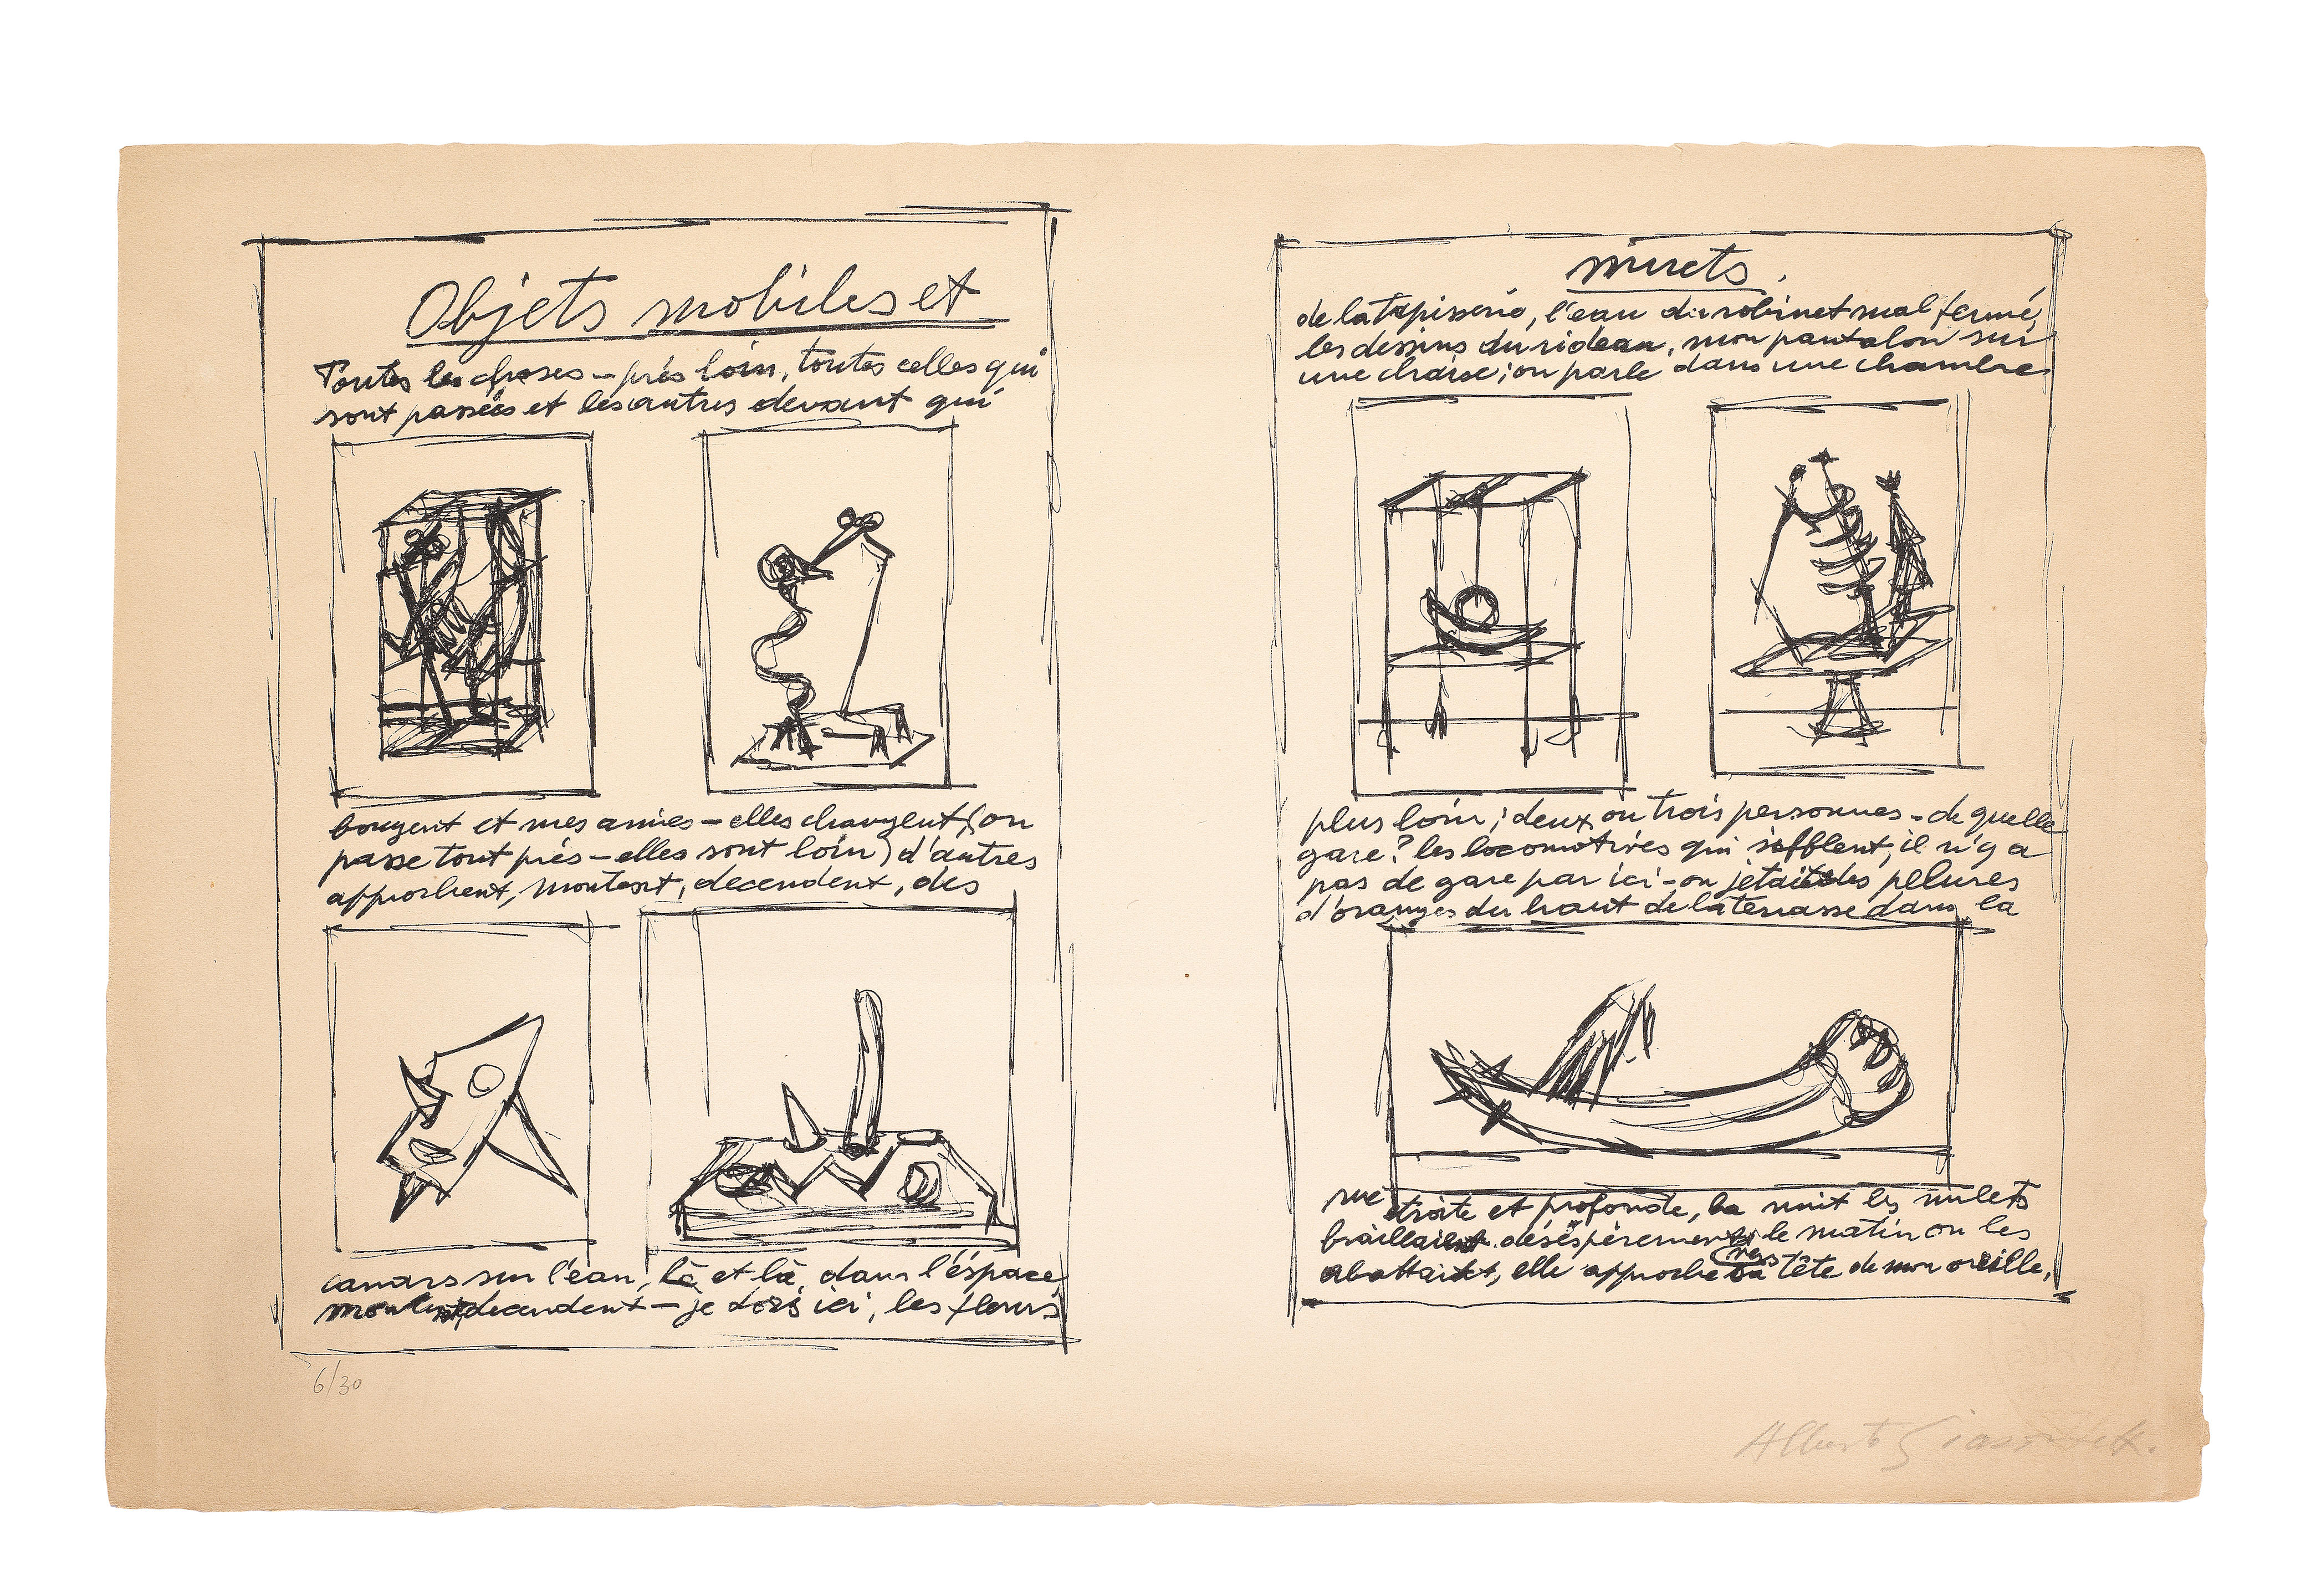 Objets mobiles et
Toutes les choses – près loin, toutes celles qui
sont passées et les autres devant qui
bougent et mes amies – elles changent (on
passe tout près – elles sont loin) d'autres
approchent, montent, decendent, des
canars sur l'eau, là et là, dans l'éspace,
montent, decendent – je dors ici, les fleurs
6/30
muets.
de la tapisserie, l'eau du robinet mal fermé,
les dessins du rideau, mon pantalon sur
une chaise; on parle dans une chambre
plus loin; deux ou trois personnes – de quelle
gare? les locomotives qui sifflent, il n'y a
pas de gare par ici – on jetait des pelures
d'oranges du haut de la terrasse dans la
rue étroite et profonde, la nuit les mulets
braillaient déséspèrement vers le matin on les
abattait, elle approche sa tête de mon oreille,
Alberto Giacometti.